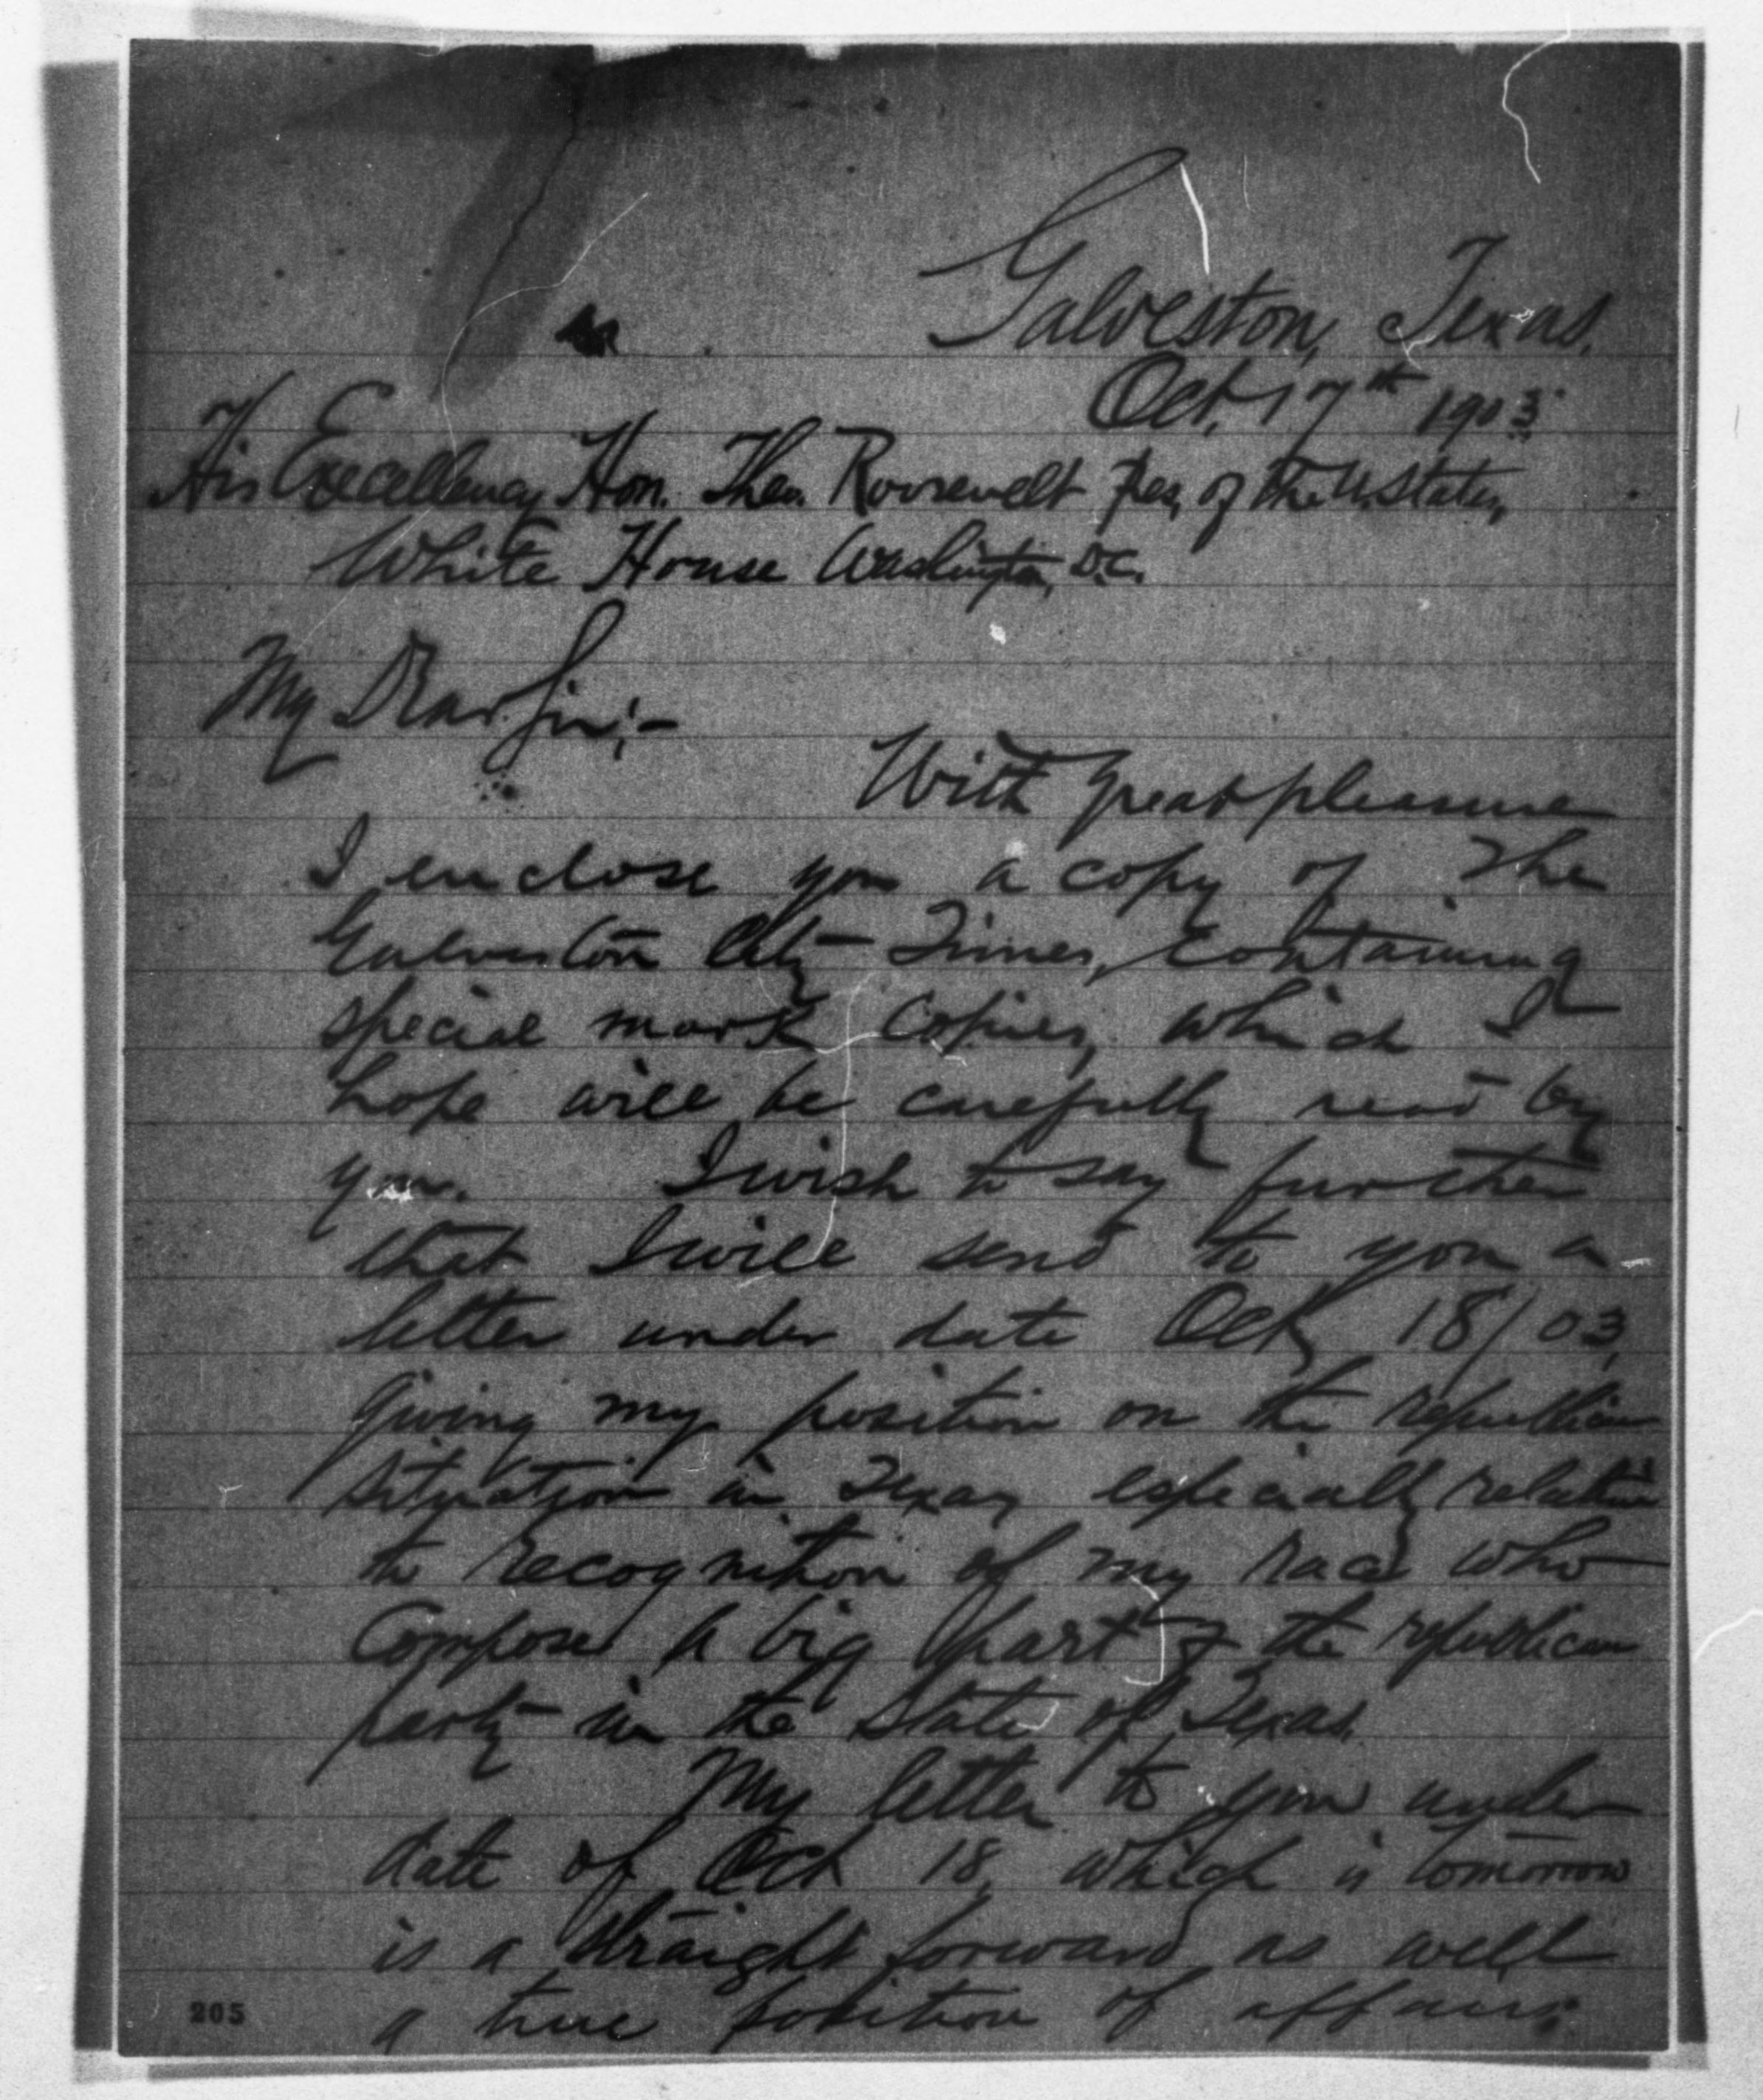 Galveston, Texas.
Oct. 17th 1903
His Excellency Hon. Theo. Roosevelt Pres. of the U. States,
White House Washington, D.C.
My Dear Sir;-
With great pleasure
I enclose you a copy of The
Galveston City Times, containing
special mark copies, which I
hope will be carefully read by
you. I wish to say further
that I will send to you a
letter under date Oct, 18/03,
giving my position on the republican
situation in Texas especially relative
to recognition of my race who
compose a big part of the republican
party in the State of Texas.
My letter to you under
date of Oct 18, which is tomorrow
is a straight forward as well
a true position of affairs;
205